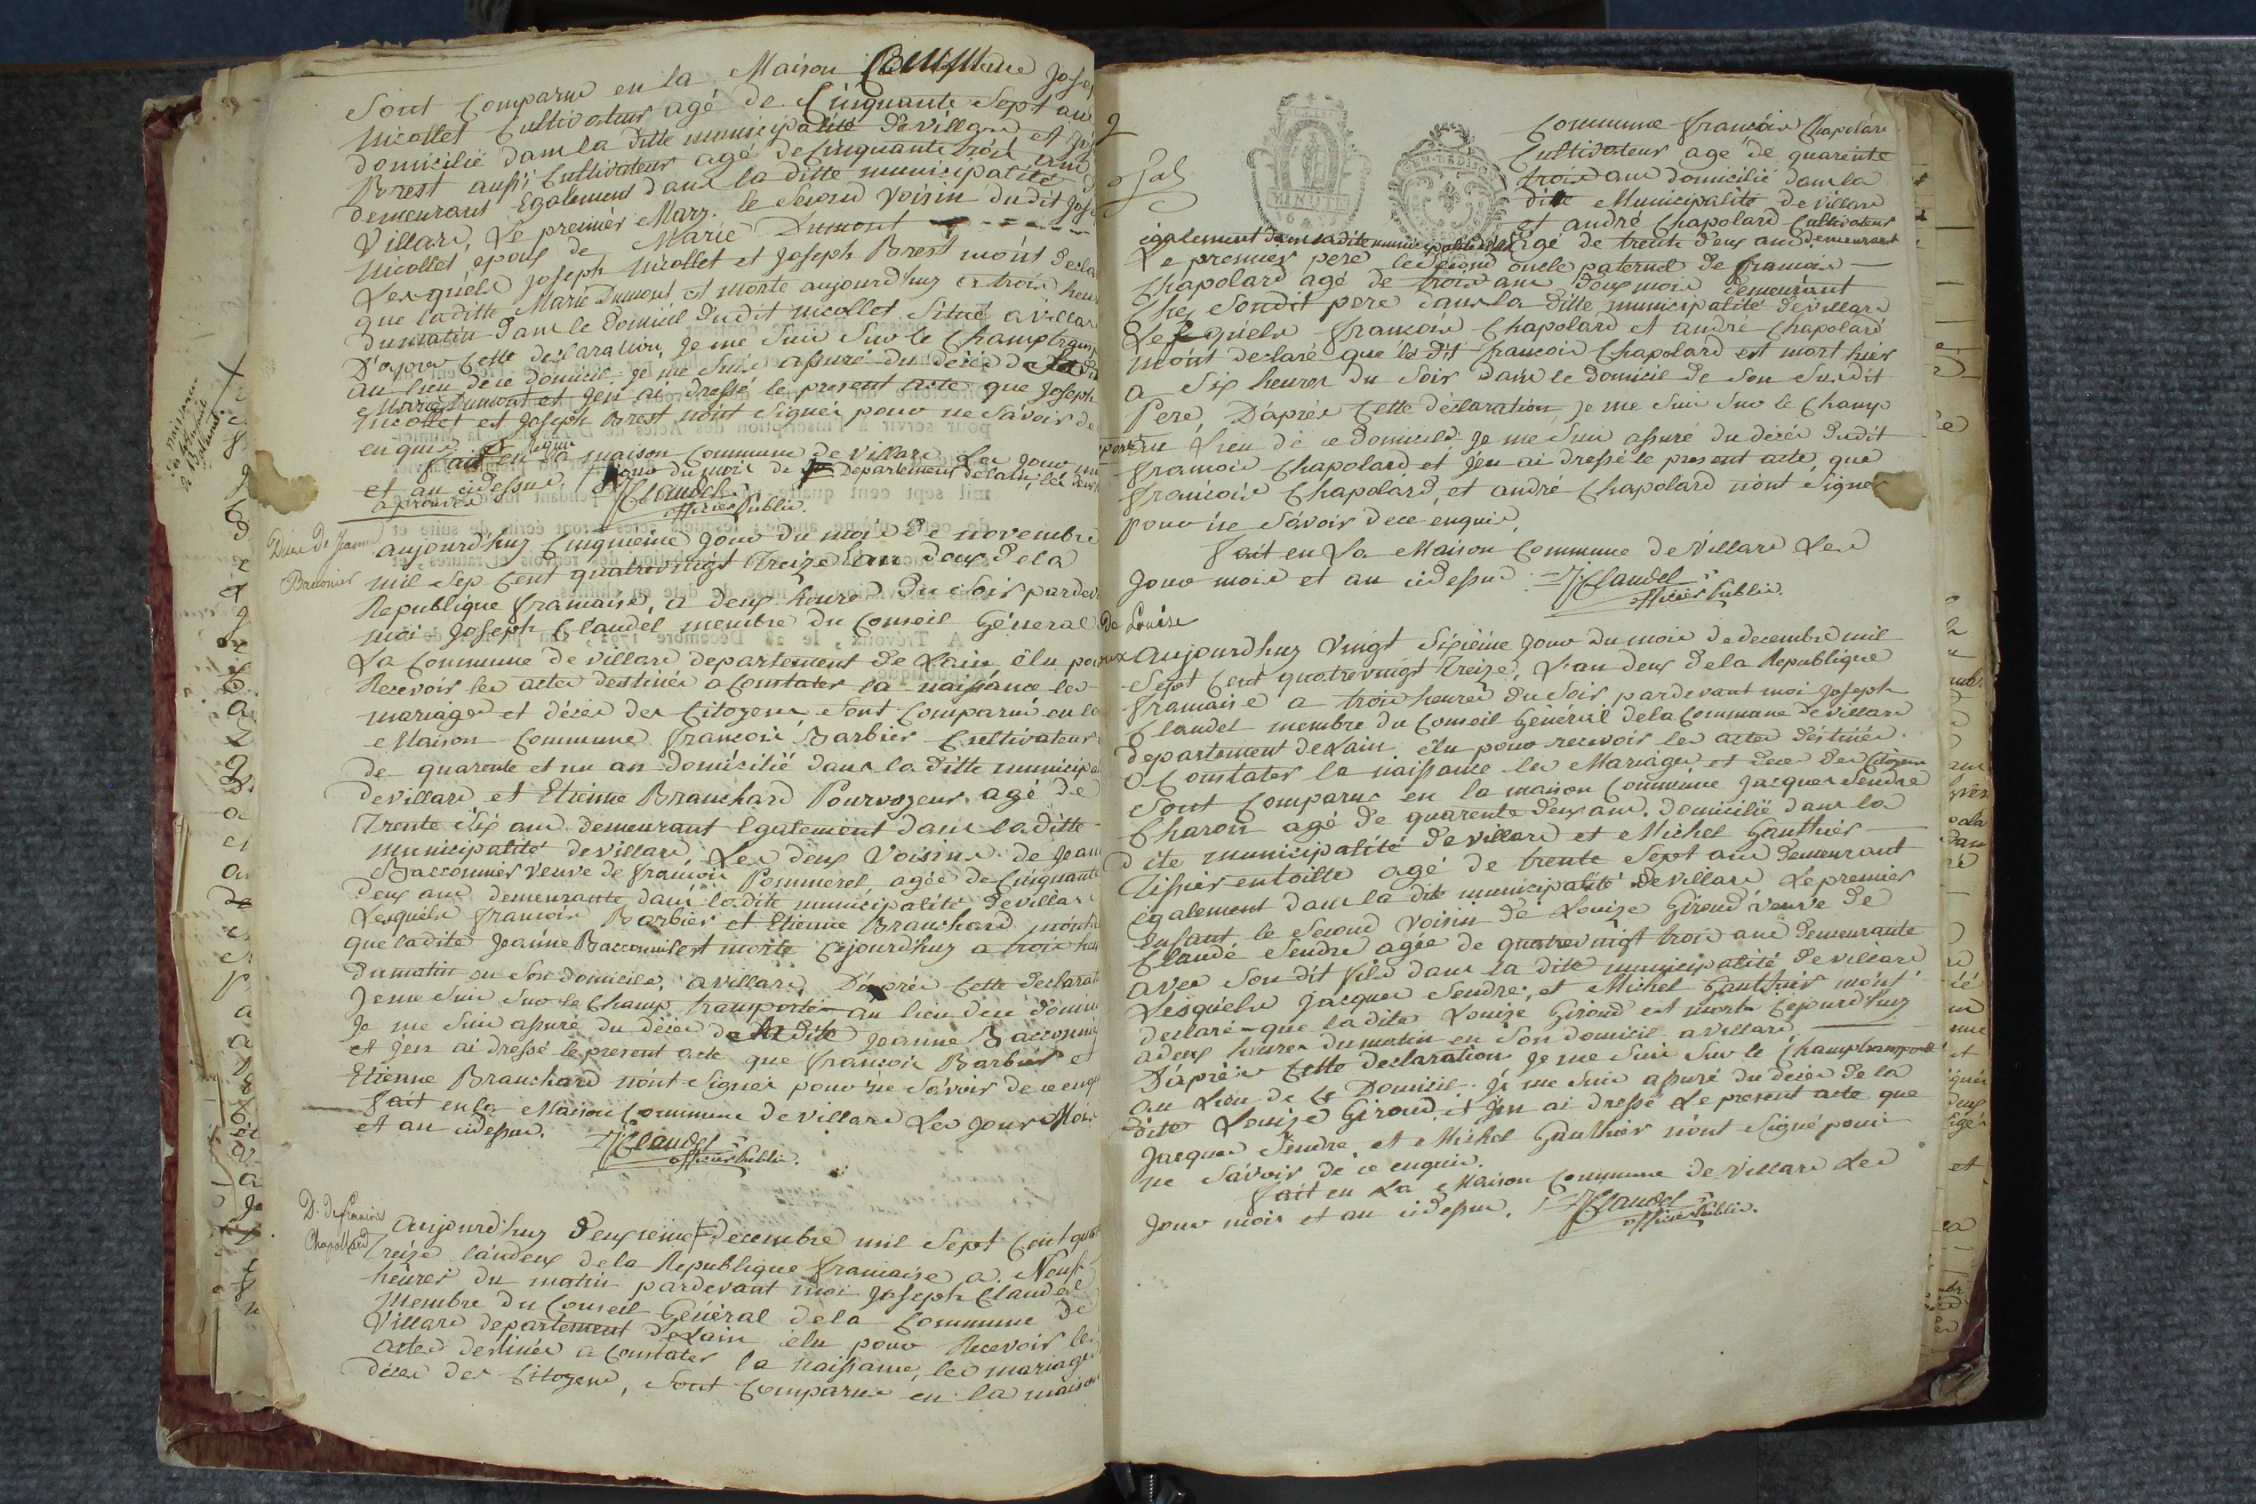 Sont Comparue en la Maison Commune Josep
Nicollet Cultivateur agé de Cinquante Sept ans
domicilié dans la ditte municipalité de villars et
Brest aussi Cultivateur agé de Cinquante trois ans
demeurant Egalement dans la ditte municipalité de
Villars, Le premier Mary. le second voisin dudit Jose
Nicollet epoux de Marie Dumont
Lesquels Joseph Nicollet et Joseph Brest m'ont decla
que laditte Marie Dumont, est morte aujourd'huy a trois heur
du matin dans le domicil dudit Nicollet Situé a villars
D'apres Cette declaration, Je me Suis Sur le Champ transp
au lieu de ce domicil je me Suis assuré du décès de la di
Marie Dumont et J'en ai dressé le present acte que Joseph
Nicollet et Joseph Brest n'ont Signés pour ne Savoir de
enquis
fait en la maison Commune de Villars Les Jour
et an cidessus. Departement de l'ain
JClaudel
officier Public.
Deces de Jeanne
Braconnier
aujourd'huy Cinquieme Jour du mois de novembre
mil Sep Cent quatrevingt Treize L'an deux de la
Republique francaise, a deux heures du Soir pardev
moi Joseph Claudel membre du Conseil Général de
La Commune de villars departement de L'ain élu pour
Recevoir les actes destinés a Constater la naissance les
mariages et décès des Citoyens Sont Comparus en la
Maison Commune francois Barbier Cultivateur
de quarente et un an domicilié dans la ditte municipa
de villars et Etienne Branchard Pourvoyeur agé de
Trente Six ans demeurant Egalement dans la ditte
municipalité de villars, Les deux Voisins de Jean
Bacconnier veuve de francois Pommerel, agée de Cinquante
deux ans demeurante dans la dite municipalité de villars
Lesquels francois Barbier et Etienne Branchard m'ont
que ladite Jeanne Bacconnier est morte Cejourd'huy a trois heu
du matin en Son domicile, a villars, D'après Cette declarat
Je me Suis Sur le Champ transporté au lieu de ce domic
Je me Suis assuré du décès de la dite Jeanne Bacconni
et J'en ai dressé le present acte que francois Barbier et
Etienne Branchard n'ont Signés pour ne Savoir de ce enqu
fait en la Maison Commune de villars Les Jour Mois
et an cidessus. JClaudel
officier Public.
D. de francois
Chapollard
Aujourd'huy deuxieme decembre mil Sept Cent quat
Treize l'an deux de la Republique francaise a Neuf
heures du matin pardevant moi Joseph Claudel
Membre du Conseil Général de la Commune de
Villars departement de L'ain élu pour Recevoir les
actes destinés a Constater la naissance, les mariages
décès des Citoyens, Sont Comparus en la maison
Commune francois Chapolard
Cultivateur age de quarente
trois ans domicilié dans la
dite Municipalité de villars
et andré Chapolard Cultivateur
également dans la dite municipalité agé de trente deux ans demeurant
Le premier pere le Second oncle paternel de francois
Chapolard agé de trois ans deux mois demeurant
Chez Sondit pere dans la ditte municipalité de villars
Lesquels francois Chapolard et andré Chapolard
m'ont declaré que le dit francois Chapolard est mort hier
a Six heures du Soir dans le domicil de Son Susdit
Pere, D'après Cette déclaration, Je me Suis Sur le Champ
Lieu de ce domicile Je me Suis assuré du décès dudit
francois Chapolard et J'en ai dressé le present acte, que
francois Chapolard, et andré Chapolard n'ont Signés
pour ne Savoir de ce enquis,
Fait en La Maison Commune de Villars Les
Jour mois et an cidessus. JClaudel
officier Public.
de Louise
aujourd'huy Vingt Sixième Jour du mois de decembre mil
Sept Cent quatrevingt Treize, L'an deux de la Republique
francaise a trois heures du Soir pardevant moi Joseph
Claudel membre du Conseil Général de la Commune de villars
departement de L'ain élu pour recevoir les actes destinés
a Constater la naissance les Mariages et deces des Citoyens
Sont Comparus en la maison Commune Jacques Sendre
Charon agé de quarente deux ans, domicilié dans la
dite municipalité de villars et Michel Gauthier
Tissier en toille agé de trente Sept ans demeurant
également dans la dite municipalité de villars Le premier
enfant le Second voisin de Louize Giroud veuve de
Claude Sendre agée de quatrevingt trois ans demeurante
avec Son dit fils dans la ditte municipalité de villars
Lesquels Jacques Sendre, et Michel Gauthier m'ont
declaré que ladite Louize Giroud est morte Cejourd'huy
a deux heures du matin en Son domicil a villars,
D'après Cette declaration Je me Suis Sur le Champ transporté
au Lieu de ce Domicil. Je me Suis assuré du décès de la
dite Louize Giroud, et J'en ai dressé Le present acte que
Jacques Sendre et Michel Gauthier n'ont Signé pour
ne Savoir de ce enquis.
Fait en La Maison Commune de Villars Les
Jour mois et an cidessus. JClaudel
officier Public.